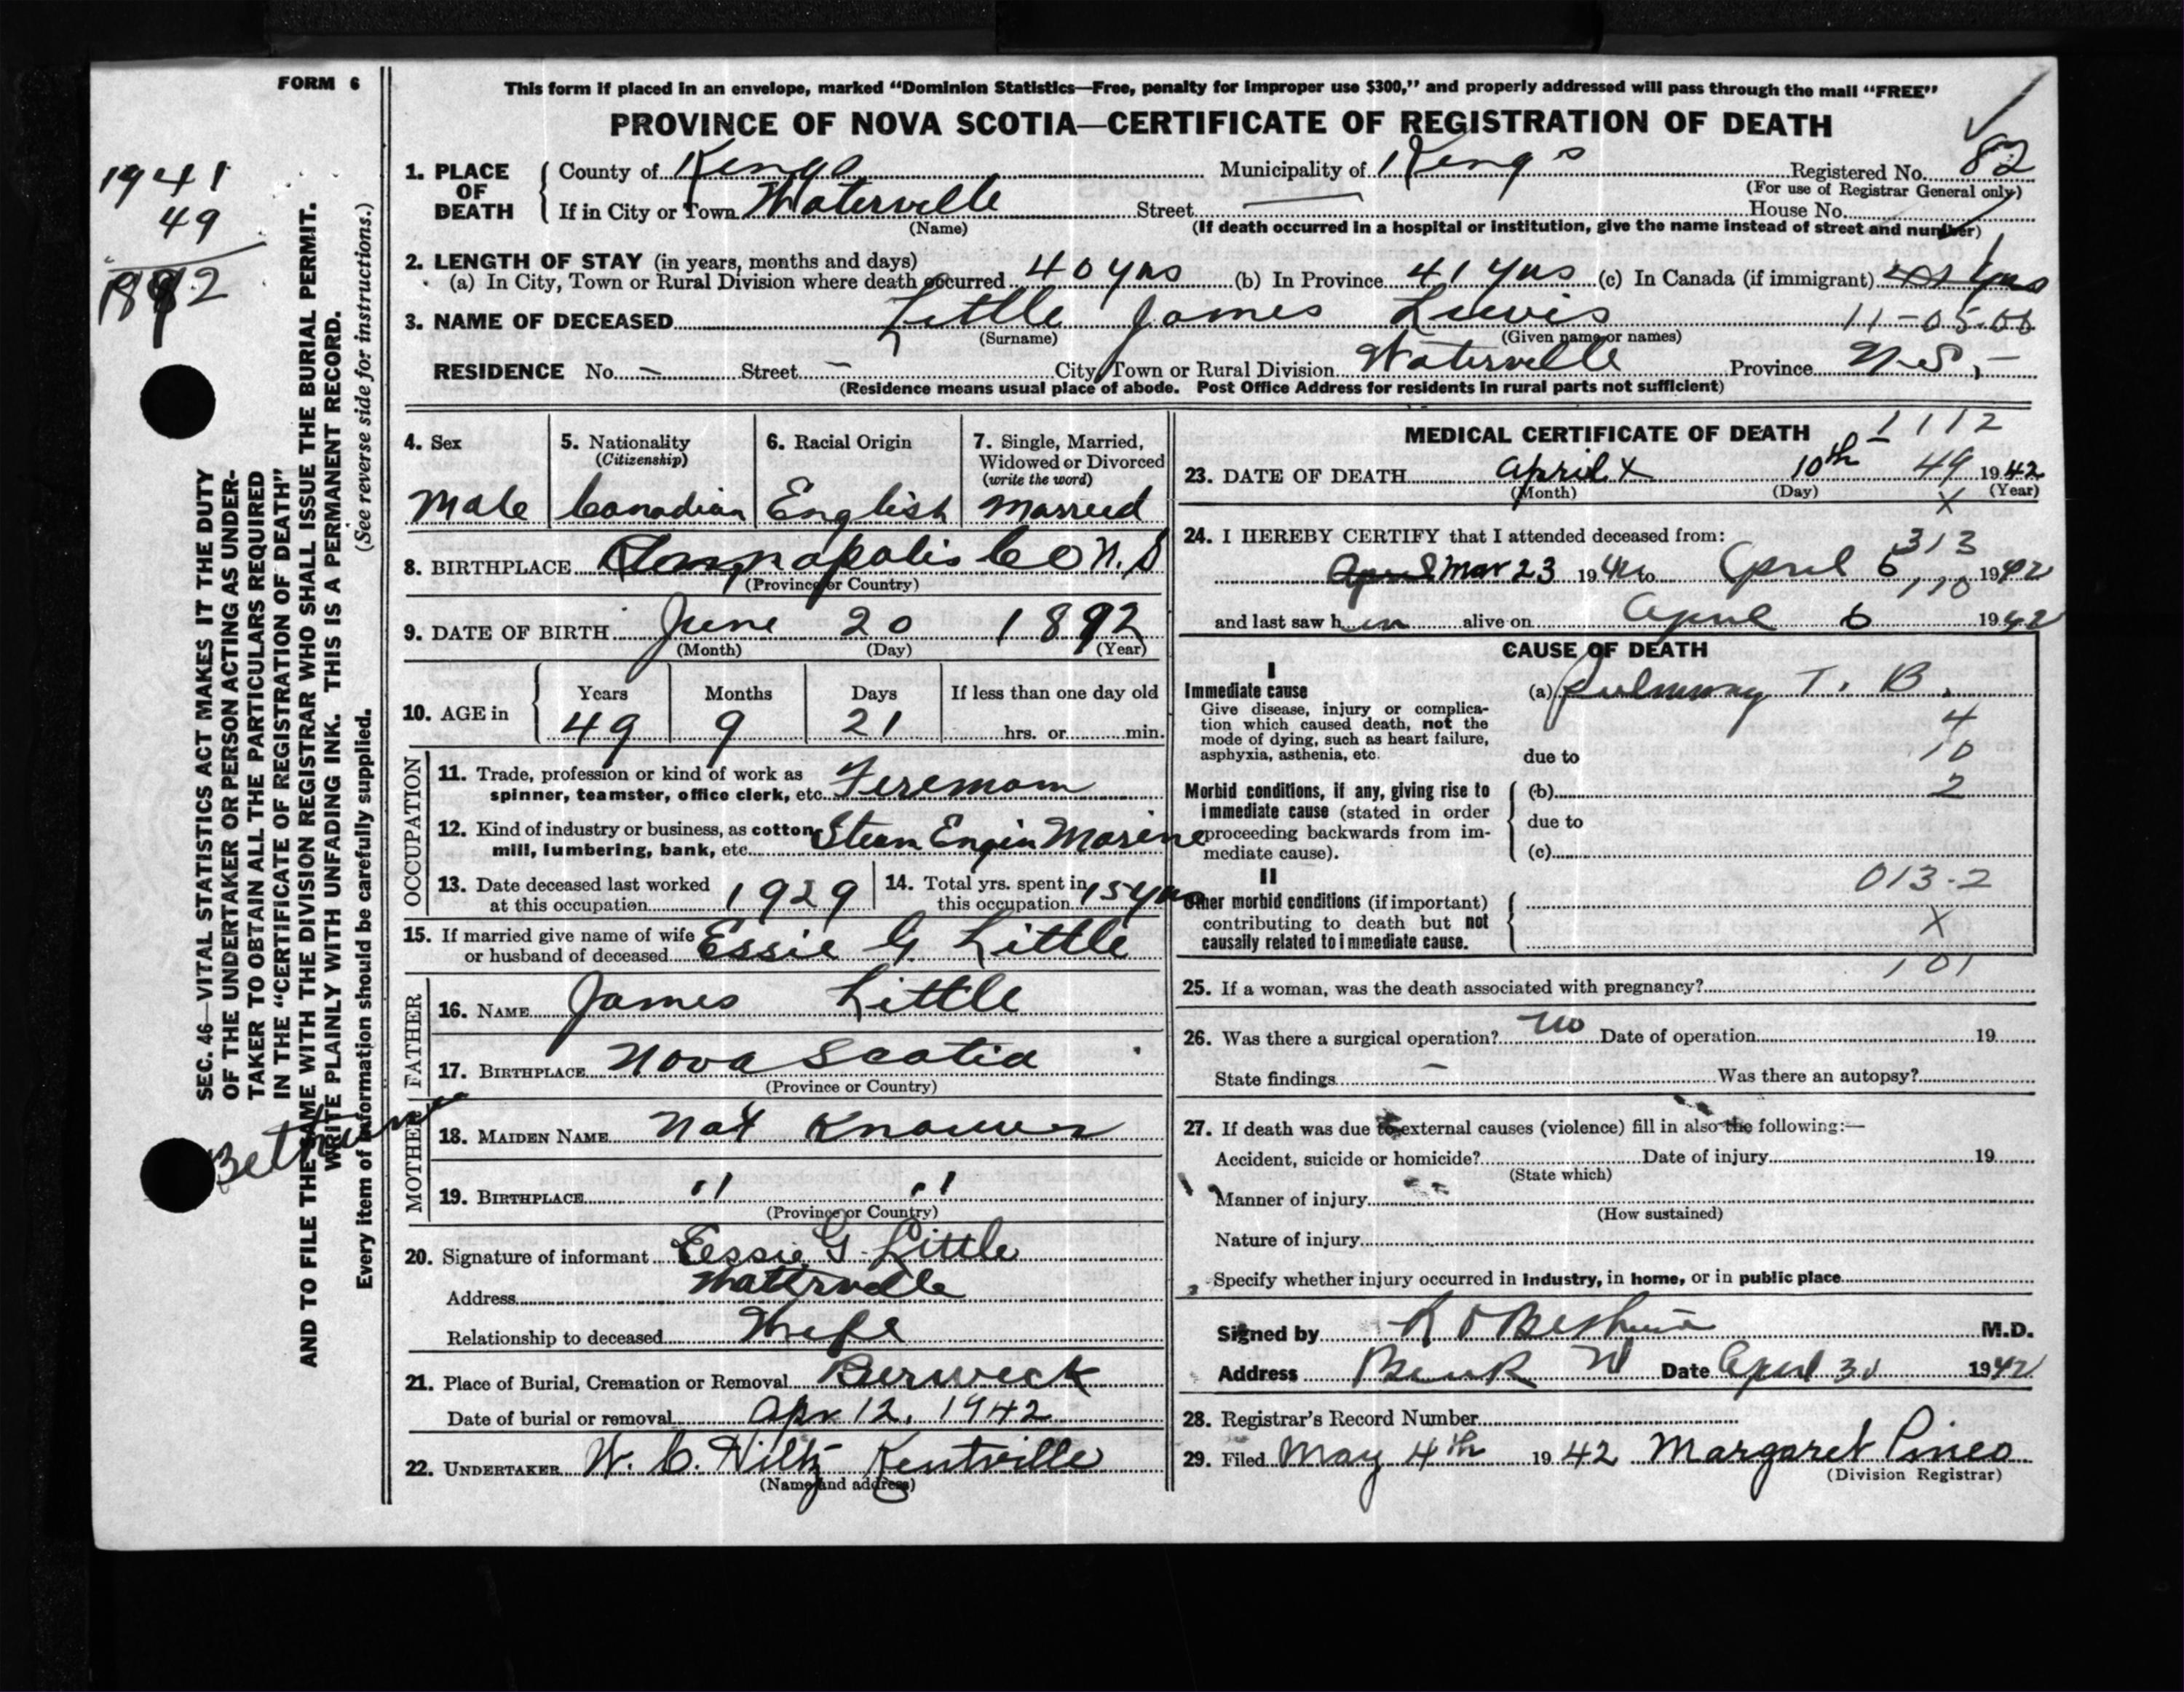 FORM 6
This form if placed in an envelope, marked “Dominion Statistics—Free, penalty for improper use $300,” and properly addressed will pass through the mail “FREE”
PROVINCE OF NOVA SCOTIA—CERTIFICATE OF REGISTRATION OF DEATH
1941
49
1892
SEC. 46—VITAL STATISTICS ACT MAKES IT THE DUTY
OF THE UNDERTAKER OR PERSON ACTING AS UNDER-
TAKER TO OBTAIN ALL THE PARTICULARS REQUIRED
IN THE “CERTIFICATE OF REGISTRATION OF DEATH”
AND TO FILE THE SAME WITH THE DIVISION REGISTRAR WHO SHALL ISSUE THE BURIAL PERMIT.
WRITE PLAINLY WITH UNFADING INK. THIS IS A PERMANENT RECORD.
Every item of information should be carefully supplied. (See reverse side for instructions.)
1. PLACE OF DEATH County of Kings Municipality of Kings Registered No. 82
(For use of Registrar General only)
If in City or Town Waterville Street House No.
(Name) (If death occurred in a hospital or institution, give the name instead of street and number)
2. LENGTH OF STAY (in years, months and days)
(a) In City, Town or Rural Division where death occurred 40 yrs (b) In Province 41 yrs (c) In Canada (if immigrant)
3. NAME OF DECEASED Little James Lewis 11-05.00
(Surname) (Given name or names)
RESIDENCE No. — Street — City, Town or Rural Division Waterville Province N.S.
(Residence means usual place of abode. Post Office Address for residents in rural parts not sufficient)
4. Sex 5. Nationality 6. Racial Origin 7. Single, Married,
(Citizenship) Widowed or Divorced
(write the word)
Male Canadian English Married
8. BIRTHPLACE Annapolis Co N.S
(Province or Country)
9. DATE OF BIRTH June 20 1892
(Month) (Day) (Year)
10. AGE in Years Months Days If less than one day old
49 9 21 hrs. or min.
OCCUPATION
11. Trade, profession or kind of work as
spinner, teamster, office clerk, etc. Fireman
12. Kind of industry or business, as cotton
mill, lumbering, bank, etc. Steam Engin Marine
13. Date deceased last worked
at this occupation 1929
14. Total yrs. spent in
this occupation 15 yrs
15. If married give name of wife
or husband of deceased Essie G Little
FATHER
16. NAME James Little
17. BIRTHPLACE Nova Scotia
(Province or Country)
MOTHER
18. MAIDEN NAME Not Known
19. BIRTHPLACE " "
(Province or Country)
20. Signature of informant Essie G Little
Address Waterville
Relationship to deceased Wife
21. Place of Burial, Cremation or Removal Berwick
Date of burial or removal Apr 12, 1942
22. UNDERTAKER W. C. Hiltz Kentville
(Name and address)
MEDICAL CERTIFICATE OF DEATH 1112
23. DATE OF DEATH April x 10th 49 1942
(Month) (Day) (Year)
X
24. I HEREBY CERTIFY that I attended deceased from:
313
Mar 23 1942 to April 6 1942
110
and last saw h im alive on April 6 1942
CAUSE OF DEATH
I
Immediate cause
Give disease, injury or complica-
tion which caused death, not the
mode of dying, such as heart failure,
asphyxia, asthenia, etc.
(a) Pulmonary T. B.
4
due to 10
Morbid conditions, if any, giving rise to
immediate cause (stated in order
proceeding backwards from im-
mediate cause).
(b) 2
due to
(c)
II
Other morbid conditions (if important)
contributing to death but not
causally related to immediate cause.
013-2
X
101
25. If a woman, was the death associated with pregnancy?
26. Was there a surgical operation? No Date of operation 19
State findings — Was there an autopsy?
27. If death was due to external causes (violence) fill in also the following:—
Accident, suicide or homicide? Date of injury 19
(State which)
Manner of injury
(How sustained)
Nature of injury
Specify whether injury occurred in industry, in home, or in public place
Signed by M.D.
Address Date April 30 1942
28. Registrar’s Record Number
29. Filed May 4th 1942 Margaret Pineo
(Division Registrar)